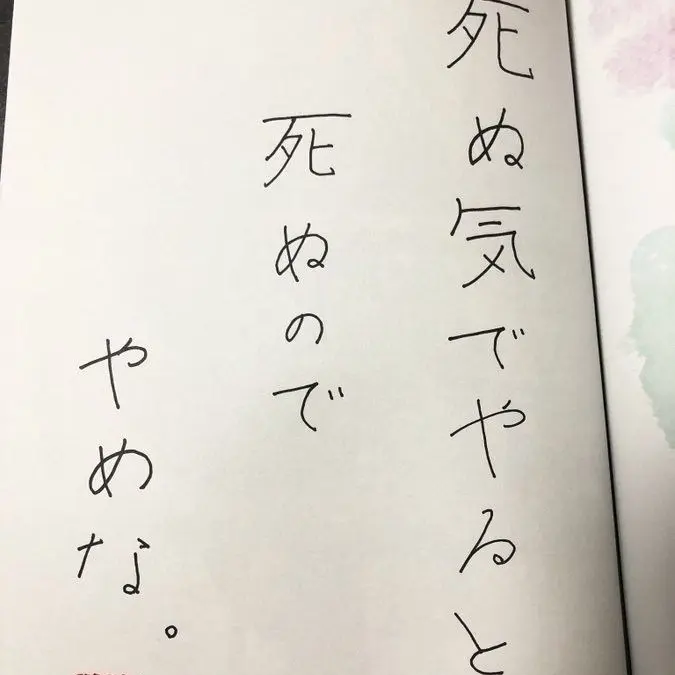 死ぬ気でやると
死ぬので
やめな。